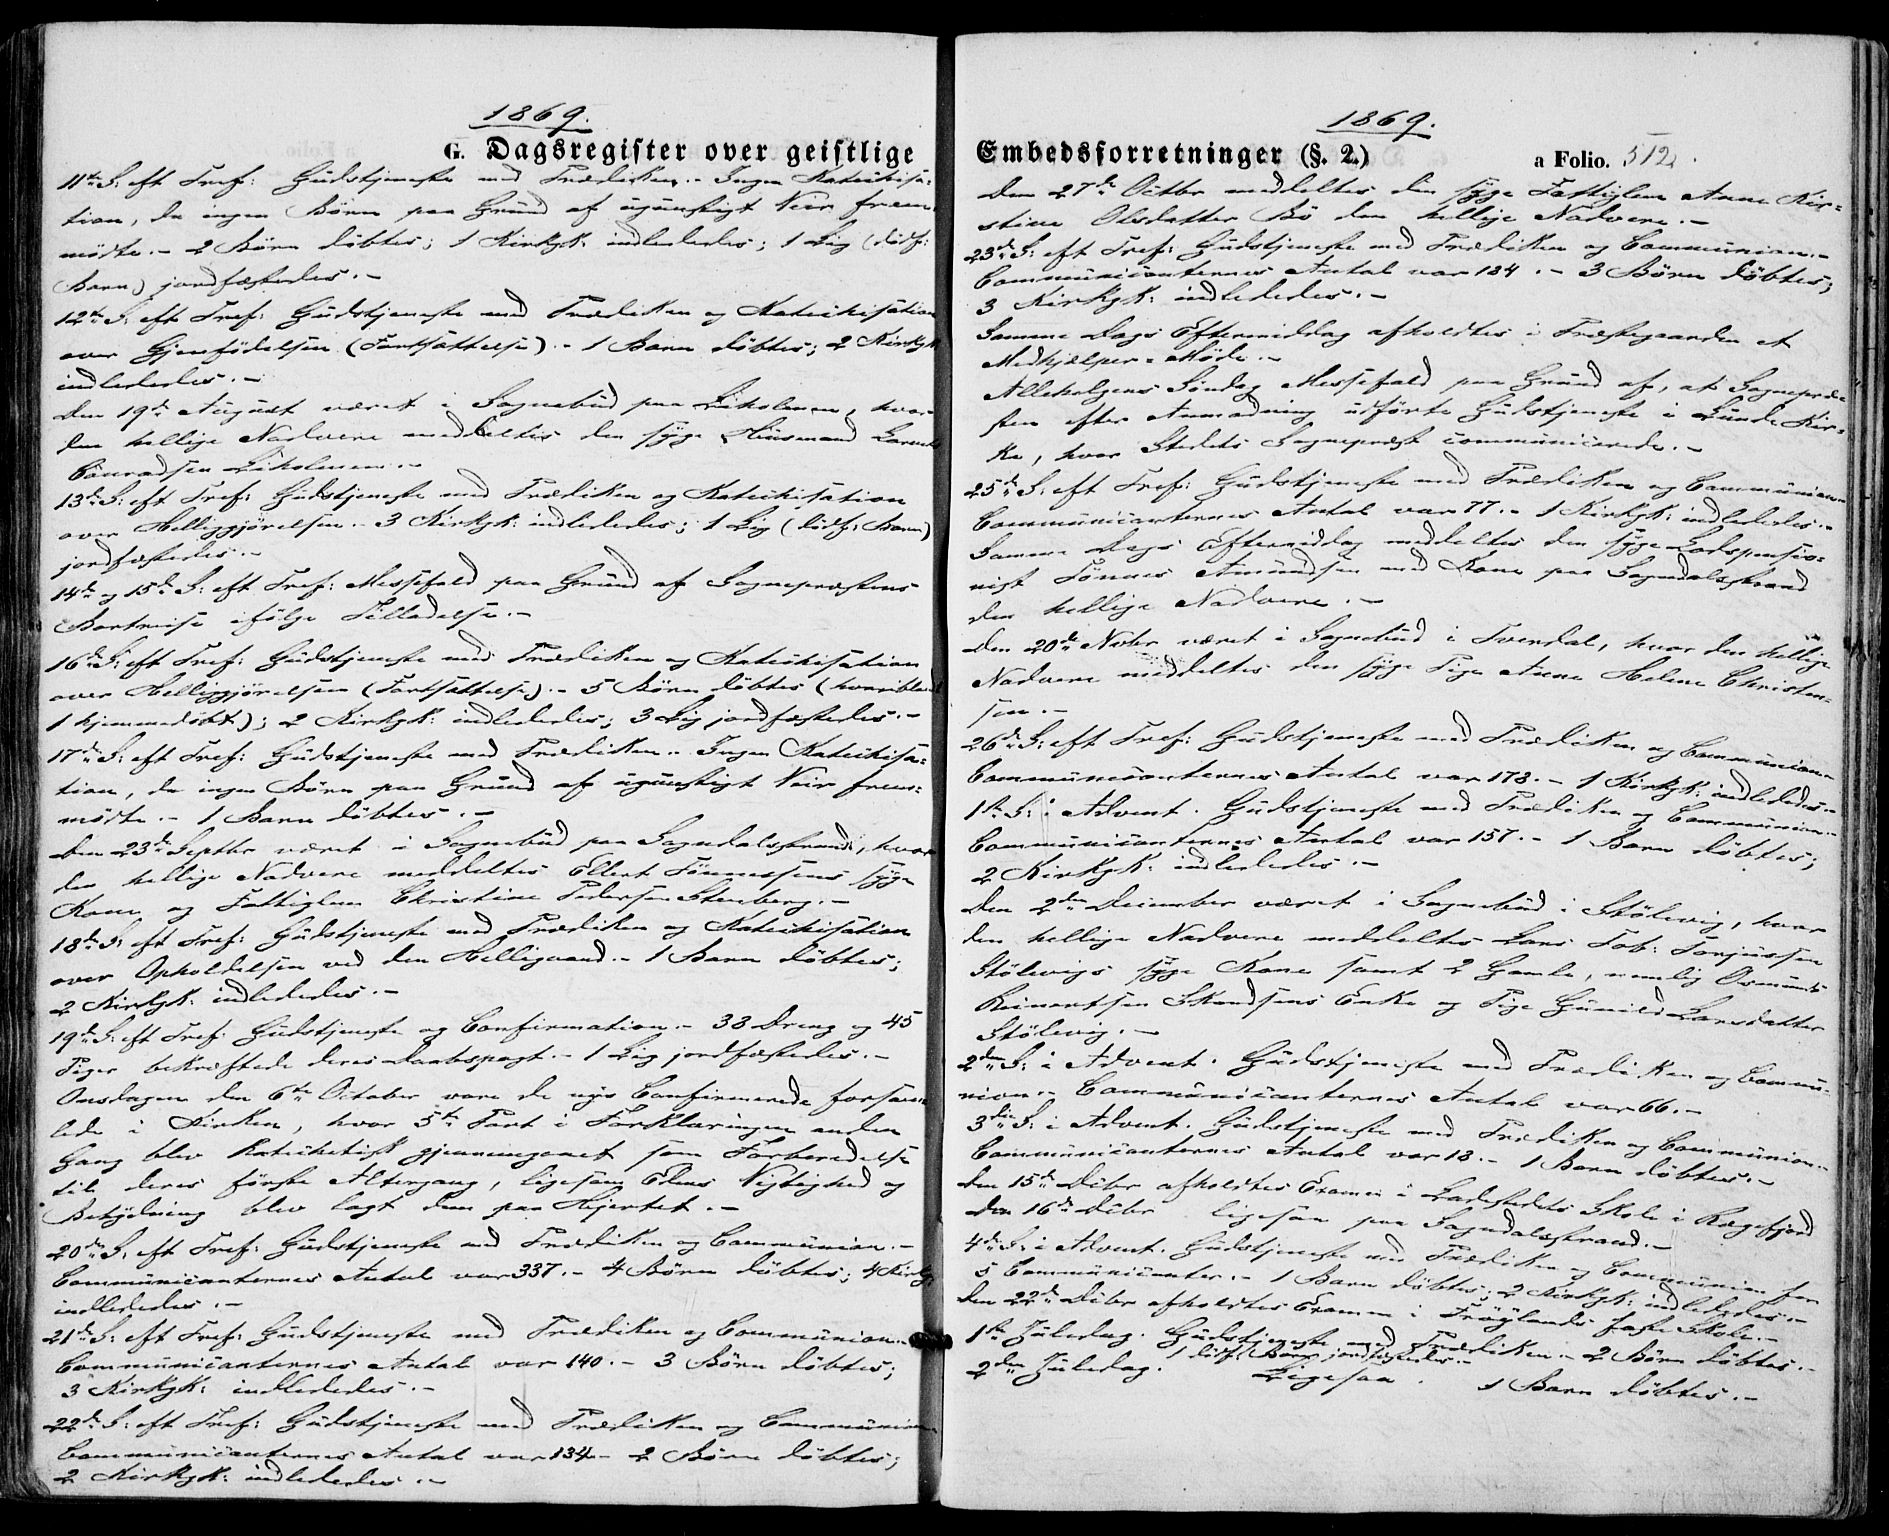 1869.
G. Dagsregister over geistlige
11te S: eft Tref: Gudstjeneste med Prædiken.- Ingen Katechisa-
tion, da ingen Börn paa Grund af ugunstigt Veir frem-
mödte.- 2 Börn döbtes; 1 Kirkgk: indlededes; 1 Lig (dödf:
Barn) jordfæstedes.-
12te S: eft Tref: Gudstjeneste med Prædiken og Katechisation
over Gjenfödelsen (Fortsættelse).- 1 Barn döbtes; 2 Kirkgk:
indlededes.-
Den 19de August været i Sognebud paa Liholmen, hvor
den hellige Nadvere meddeltes den syge Huusmand
Conradsen Liholmen.-
13de S: eft Tref: Gudstjeneste med Prædiken og Katechisation
over Helliggjörelsen.- 3 Kirkgk: indlededes; 1 Lig (dödf: Barn)
jordfæstedes.-
14de og 15de S: eft Tref: Messefald paa Grund af Sognepræstens
Bortreise ifölge Tilladelse.-
16de S: eft Tref: Gudstjeneste med Prædiken og Katechisation
over Helliggjörelsen (Fortsættelse).- 5 Börn döbtes (hvoriblandt
1 hjemmedöbt); 2 Kirkgk: indlededes; 3 Lig jordfæstedes.-
17de S: eft Tref: Gudstjeneste med Prædiken.- Ingen Katechisa-
tion, da ingen Börn paa Grund af ugunstigt Veir frem-
mödte.- 1 Barn döbtes.-
Den 23de Septbr været i Sognebud paa Sogndalsstrand, hvor
den hellige Nadvere meddeltes Ellert Tönnessens syge
Kone og Fattiglem Christine Pedersen Stenberg.-
18de S: eft Tref: Gudstjeneste med Prædiken og Katechisation
over Opholdelsen ved den Helligaand.- 1 Barn döbtes;
2 Kirkgk: indlededes.-
19de S: eft Tref: Gudstjeneste og Confirmation.- 33 Dreng og 45
Piger bekræftede deres Daabspagt.- 1 Lig jordfæstedes.-
Onsdagen den 6te October vare de nys Confirmerede forsam-
lede i Kirken, hvor 5te Part i Forklaringen anden
Gang blev katechetisk gjennemgaaet som Forberedelse
til deres förste Altergang, ligesom Edens Vigtighed og
Betydning blev lagt dem paa Hjertet.-
20de S: eft Tref: Gudstjeneste med Prædiken og Communion.-
Communicanternes Antal var 337.- 4 Börn döbtes; 4 Kirkg:
indlededes.-
21de S: eft Tref: Gudstjeneste med Prædiken og Communion.-
Communicanternes Antal var 140.- 3 Börn döbtes;
3 Kirkgk: indlededes.-
22de S: eft Tref: Gudstjeneste med Prædiken og Communion
Communicanternes Antal var 134.- 2 Börn döbtes;
2 Kirkgk: indlededes.-
1869.
Embedsforretninger (§. 2.) a Folio. 512.
Den 27de Octbr meddeltes den syge Fattiglem Anne Kir-
stine Olsdatter Bö den hellige Nadvere.-
23de S: eft Tref: Gudstjeneste med Prædiken og Communion.-
Communicanternes Antal var 184.- 3 Börn döbtes;
3 Kirkgk: indlededes.-
Samme Dags Eftermiddag afholdtes i Præstegaarden et
Medhjælper-Möde.-
Allehelgens Söndag Messefald paa Grund af, at Sognepræ-
sten efter Anmodning udförte Gudstjeneste i Lunde Kir-
ke, hvor Stedets Sognepræst communicerede.-
25de S: eft Tref: Gudstjeneste med Prædiken og Communion.-
Communicanternes Antal var 77.- 1 Kirkgk: indlededes.-
Samme Dags Eftermiddag meddeltes den syge Lodspensio-
nist Tönnes Amundsen med Kone paa Sogndalsstrand
den hellige Nadvere.-
Den 20de Novbr været i Sognebud i Tvendal, hvor den hellige
Nadvere meddeltes den syge Pige Anne Helene Christen-
sen.-
26de S: eft Tref: Gudstjeneste med Prædiken og Communion.-
Communicanternes Antal var 178.- 1 Kirkgk: indlededes.-
1ste S: i Advent. Gudstjeneste med Prædiken og Communion.-
Communicanternes Antal var 157.- 1 Barn döbtes;
2 Kirkgk: indlededes.-
Den 2den December været i Sognebud i Stölevig, hvor
den hellige Nadvere meddeltes Lars Tob: Torjussen
Stölevigs syge Kone samt 2 Gamle, nemlig Osmund
Reinertsen Skandsens Enke og Pige Gunild Larsdatter
Stölevig.-
2den S: i Advent. Gudstjeneste med Prædiken og Commu-
nion.- Communicanternes Antal var 66.-
3die S: i Advent. Gudstjeneste med Prædiken og Communion.-
Communicanternes Antal var 18.- 1 Barn döbtes.-
Den 15de Decbr afholdtes Examen i Ladestedets Skole i Rægefjord
Den 16de Decbr ligesaa paa Sogndalsstrand.-
4de S: i Advent. Gudstjeneste med Prædiken og Communion for
5 Communicanter.- 1 Barn döbtes; 2 Kirkgk: indlededes.-
Den 22de Decbr afholdtes Examen i Fröylands faste Skole.-
1ste Juledag. Gudstjeneste med Prædiken.- 2 Börn döbtes.-
1 dödf: Barn jordfæstedes.-
2den Juledag. Ligesaa. 1 Barn döbtes.-